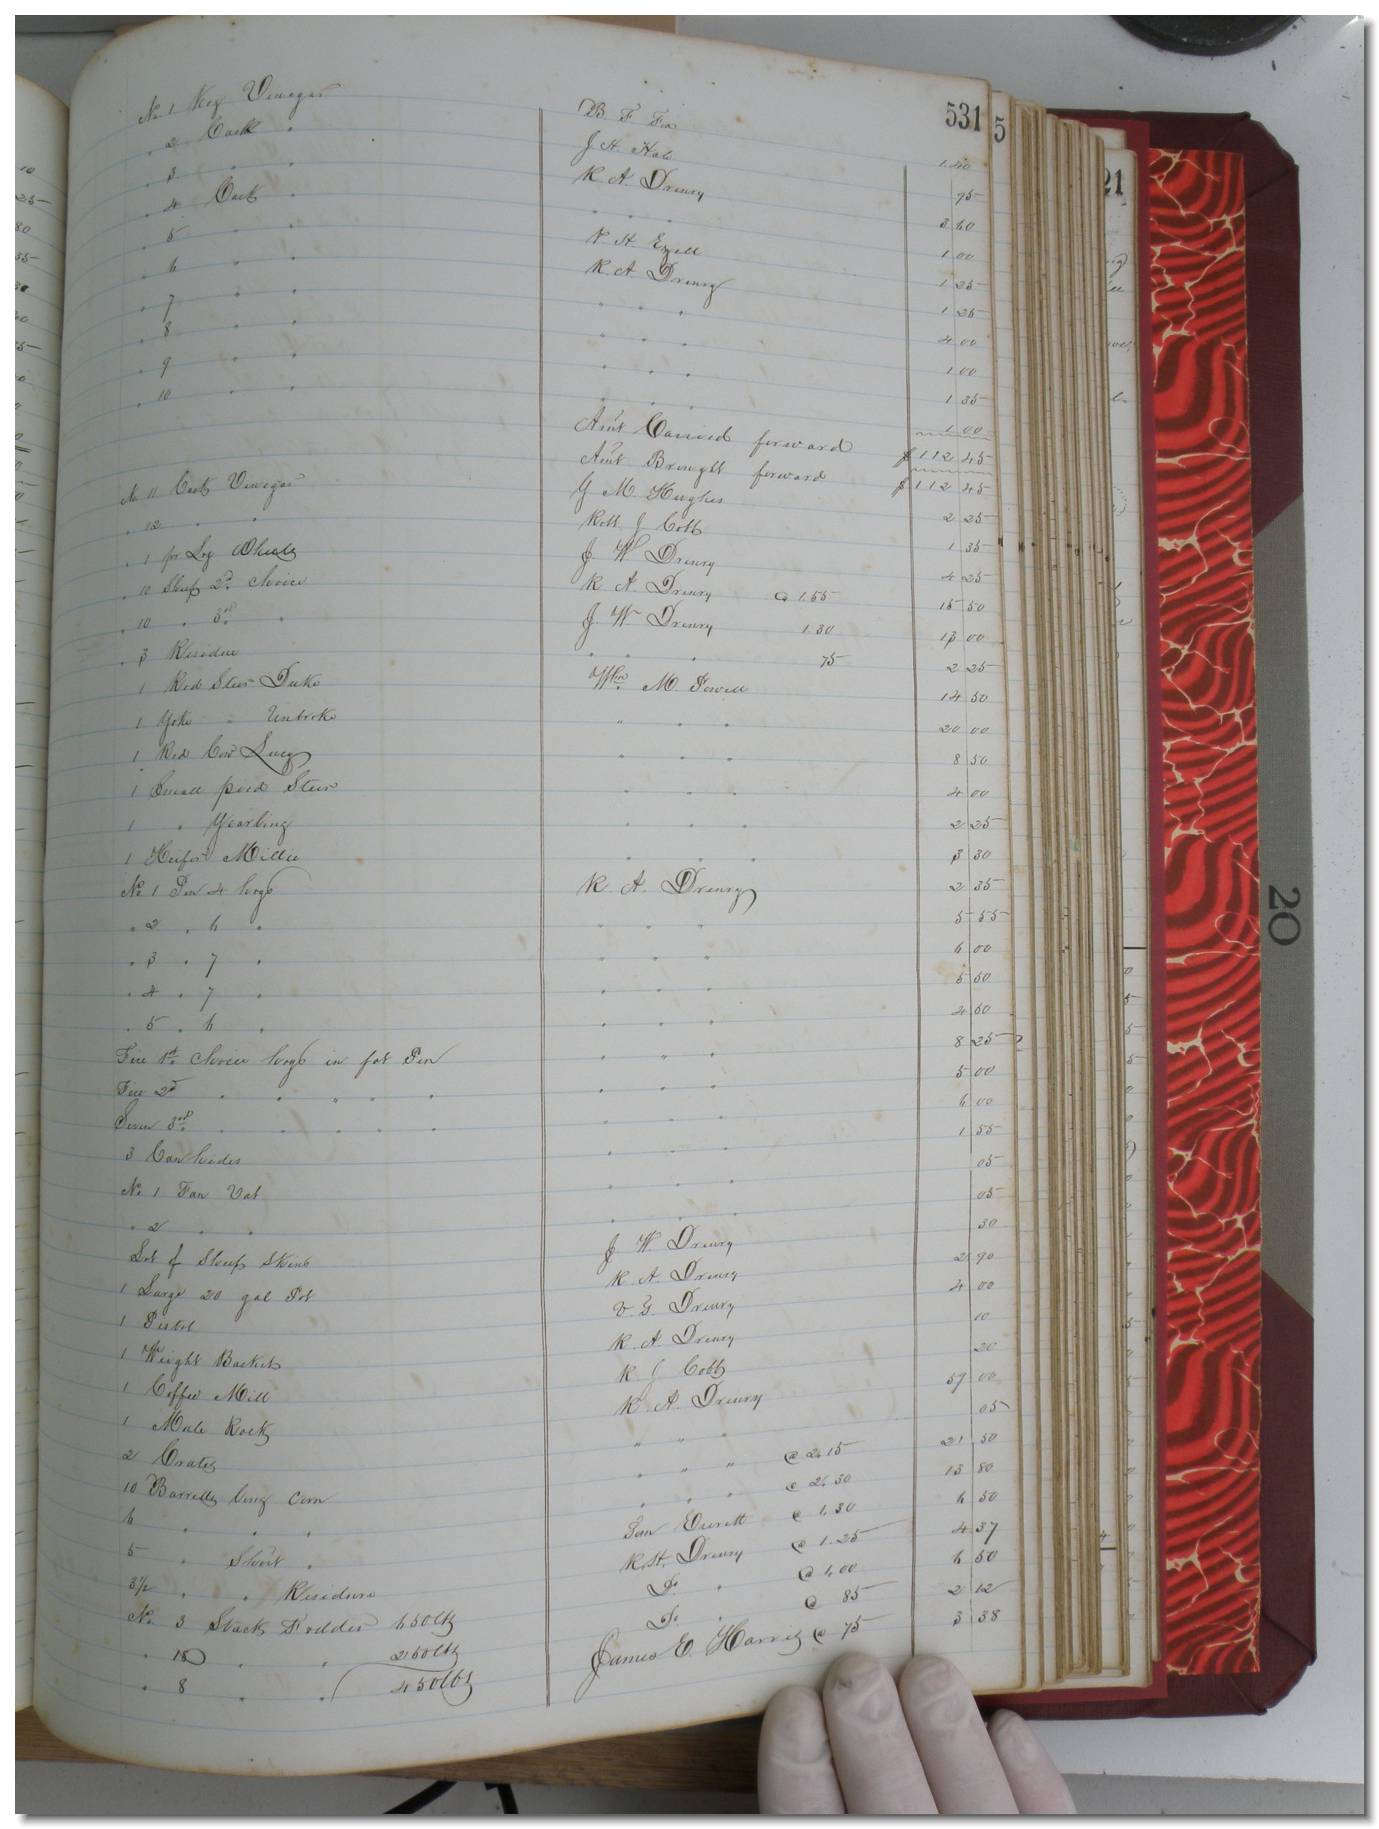 531
No 1 Keg Vinegar B. F. Fox 1.40
" 2 Cask " J H Hale 95
" 3 " " R. A. Drewry 3 60
" 4 Cask " " " " 1 00
" 5 " " R. H. Ezell 1 25
" 6 " " R. A. Drewry 1 25
" 7 " " " " " 4 00
" 8 " " " " " 1 00
" 9 " " " " " 1 35
" 10 " " " " " 1 00
Amt Carried forward $112 45
Amt Brought forward $112 45
No 11 Cask Vinegar G M. Hughes 2 25
" 12 " " Robt. J Cobb 1 35
" 1 pr Log Wheels J W Drewry 4 25
" 10 Sheep 2d choice R A Drewry @ 1.55 15 50
" 10 " 3rd " J W Drewry 1 30 13 00
" 3 Residue " " " 75 2 25
1 Red Steer Duke Wm. M. Powell 14 50
1 Yoke " Unbroke " " " 20 00
1 Red Cow Lucy " " " 8 50
1 Small pied Steer " " " 4 00
1 " Yearling " " " 2 25
1 Heifer Millie " " " 3 30
No 1 Pen 4 hogs R A. Drewry 2 35
" 2 " 6 " " " " 5 55
" 3 " 7 " " " " 6 00
" 4 " 7 " " " " 5 50
" 5 " 6 " " " " 4 50
Five 1st choice hogs in fat Pen " " " 8 25
Five 2d " " " " " " " " 5 00
Seven 3rd " " " " " " " " 6 00
3 Cow hides " " " 1 55
No. 1 Tan Vat " " " 05
" 2 " " " " " 05
Lot of Sheep Skins J W Drewry 30
1 Large 20 gal Pot R A Drewry 2 90
1 Pistol V. G Drewry 4 00
1 Weight Baskets R A Drewry 10
1 Coffee Mill R J Cobb 20
1 Mule Rock R A Drewry 57 00
2 Crates " " " 05
10 Barrells long Corn " " " @ 2.15 21 50
6 " " " " " " @ 2.30 13 80
5 " Short " Tom Everett @ 1.30 6 50
3½ " " Residue R. H. Drewry @ 1.25 4 37
No. 3 Stack Fodder 650 lbs Do. " @ 1.00 6 50
" 10 " " 250 lbs Do. " @ 85 2 12
" 8 " " 450 lbs James E. Harris @ 75 3 38
20